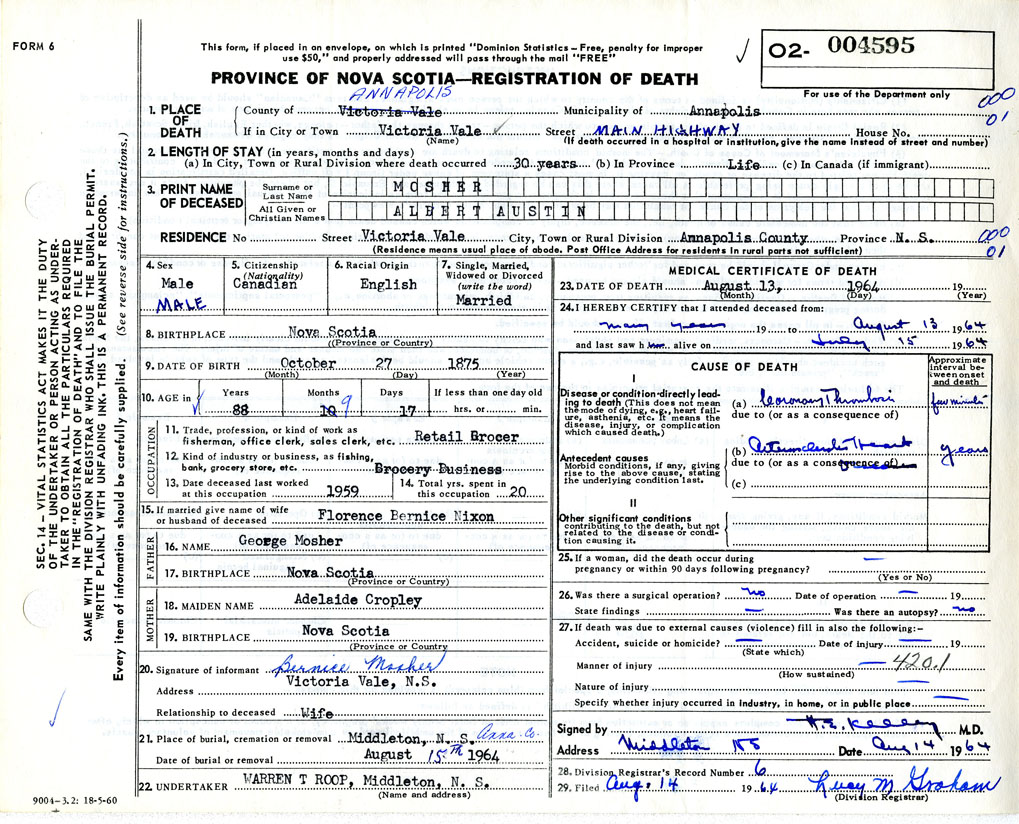 FORM 6
This form, if placed in an envelope, on which is printed "Dominion Statistics – Free, penalty for improper
use $50," and properly addressed will pass through the mail "FREE"
✓ O2- 004595
For use of the Department only
PROVINCE OF NOVA SCOTIA—REGISTRATION OF DEATH
ANNAPOLIS
000
01
1. PLACE OF DEATH { County of Victoria Vale Municipality of Annapolis
If in City or Town Victoria Vale ✓ Street MAIN HIGHWAY House No.
(Name) (If death occurred in a hospital or institution, give the name instead of street and number)
2. LENGTH OF STAY (in years, months and days)
(a) In City, Town or Rural Division where death occurred 30 years (b) In Province Life (c) In Canada (if immigrant)
3. PRINT NAME OF DECEASED
Surname or Last Name MOSHER
All Given or Christian Names ALBERT AUSTIN
RESIDENCE No Street Victoria Vale City, Town or Rural Division Annapolis County Province N. S.
000
01
(Residence means usual place of abode. Post Office Address for residents in rural parts not sufficient)
4. Sex
Male
MALE
5. Citizenship
(Nationality)
Canadian
6. Racial Origin
English
7. Single, Married,
Widowed or Divorced
(write the word)
Married
8. BIRTHPLACE Nova Scotia
((Province or Country)
9. DATE OF BIRTH October 27 1875
(Month) (Day) (Year)
10. AGE in Years Months Days If less than one day old
88 10 9 17 hrs. or min.
OCCUPATION
11. Trade, profession, or kind of work as
fisherman, office clerk, sales clerk, etc. Retail Grocer
12. Kind of industry or business, as fishing,
bank, grocery store, etc. Grocery Business
13. Date deceased last worked
at this occupation 1959
14. Total yrs. spent in
this occupation 20
15. If married give name of wife
or husband of deceased Florence Bernice Nixon
FATHER
16. NAME George Mosher
17. BIRTHPLACE Nova Scotia
(Province or Country)
MOTHER
18. MAIDEN NAME Adelaide Cropley
19. BIRTHPLACE Nova Scotia
(Province or Country
20. Signature of informant Bernice Mosher
Address Victoria Vale, N.S.
Relationship to deceased Wife
21. Place of burial, cremation or removal Middleton, N. S. Anna. Co.
Date of burial or removal August 15TH 1964
22. UNDERTAKER WARREN T ROOP, Middleton, N. S.
(Name and address)
9004-3.2: 18-5-60
MEDICAL CERTIFICATE OF DEATH
23. DATE OF DEATH August 13, 1964 19
(Month) (Day) (Year)
24. I HEREBY CERTIFY that I attended deceased from:
many years 19 to August 13 1964
and last saw h alive on July 15 1964
CAUSE OF DEATH
Approximate
interval be-
tween onset
and death
I
Disease or condition directly lead-
ing to death (This does not mean
the mode of dying, e.g., heart fail-
ure, asthenia, etc. It means the
disease, injury, or complication
which caused death.)
(a) Coronary Thrombosis few minutes
due to (or as a consequence of)
Antecedent causes
Morbid conditions, if any, giving
rise to the above cause, stating
the underlying condition last.
(b) Heart years
due to (or as a consequence of)
(c)
II
Other significant conditions
contributing to the death, but not
related to the disease or condi-
tion causing it.
25. If a woman, did the death occur during
pregnancy or within 90 days following pregnancy? —
(Yes or No)
26. Was there a surgical operation? no Date of operation — 19
State findings — Was there an autopsy? no
27. If death was due to external causes (violence) fill in also the following:–
Accident, suicide or homicide? — Date of injury — 19
(State which)
Manner of injury — 420.1
(How sustained)
Nature of injury —
Specify whether injury occurred in industry, in home, or in public place —
Signed by H. E. Kelley M.D.
Address Middleton NS Date Aug 14 1964
28. Division Registrar's Record Number 6
29. Filed Aug. 14 1964 Lucy M Graham
(Division Registrar)
SEC. 14 – VITAL STATISTICS ACT MAKES IT THE DUTY
OF THE UNDERTAKER OR PERSON ACTING AS UNDER-
TAKER TO OBTAIN ALL THE PARTICULARS REQUIRED
IN THE "REGISTRATION OF DEATH" AND TO FILE THE
SAME WITH THE DIVISION REGISTRAR WHO SHALL ISSUE THE BURIAL PERMIT.
WRITE PLAINLY WITH UNFADING INK. THIS IS A PERMANENT RECORD.
Every item of information should be carefully supplied. (See reverse side for instructions.)